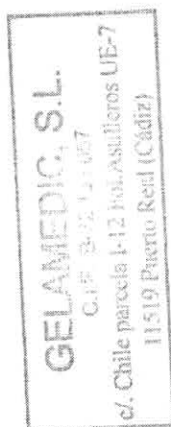 GELAMEDIC, S.L.
C.I.F.
c/. Chile parcela 1-12 Pol. Astilleros UE-7
11519 Puerto Real (Cádiz)